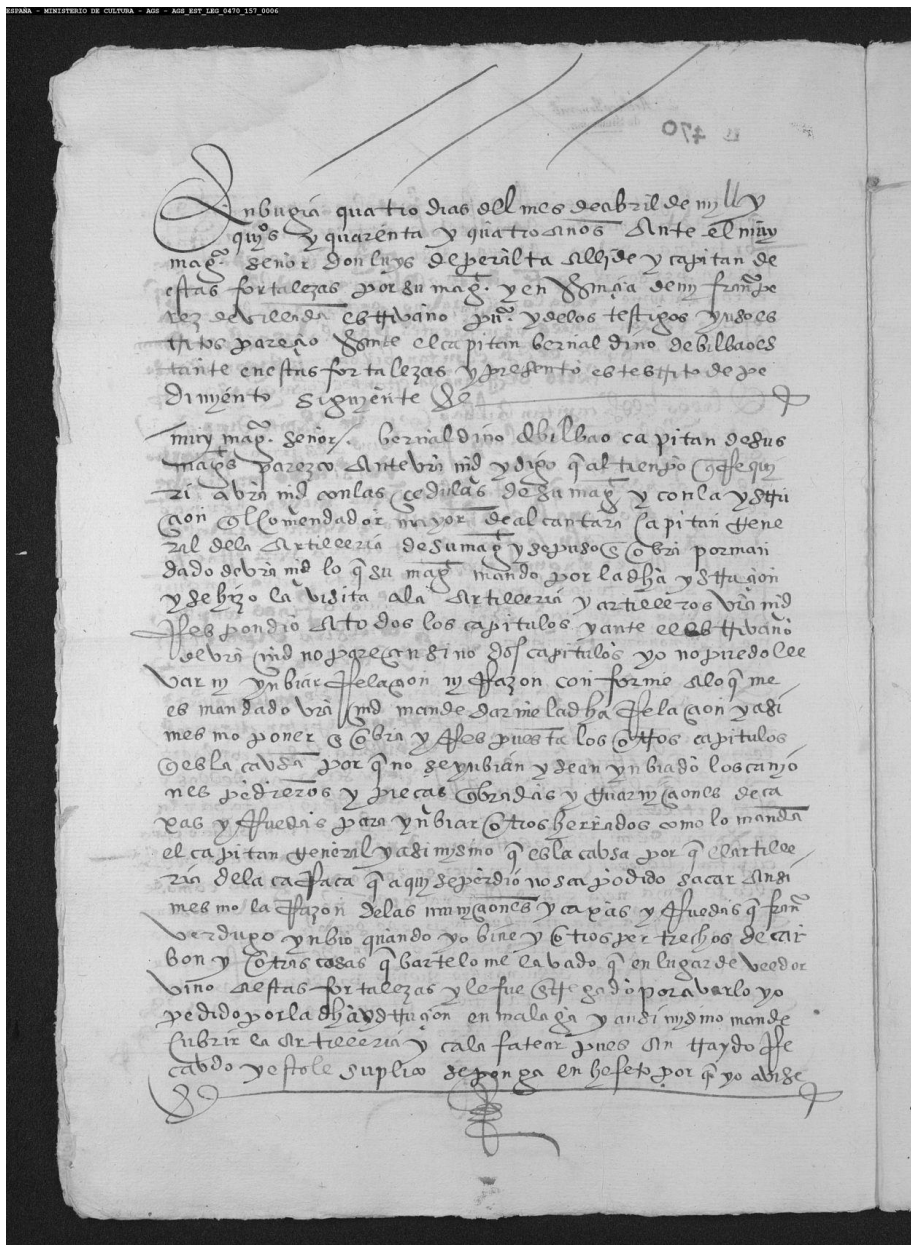 ESPAÑA - MINISTERIO DE CULTURA - AGS - AGS_EST_LEG_0470_157_0006
470
En bugia quatro dias del mes de abril de mjll y
quis y quarenta y quatro años Ante el muy
magco señor don luys de peralta Allide y capitan de
estas fortalezas por su magt. y en de mj franco pe
rez de villenda escrivano puco y de los testigos yuso es
critos pareçio el capitan bernaldino de bilbao es
tante en estas fortalezas y presento este escrito de pe
dimyento siguiente
muy magco señor / bernaldino de bilbao capitan de sus
mags parezco Ante vra md y digo q al tiempo q Requi
ri a vra md con las çedulas de su magt y con la ystru
çion del comendador mayor de alcantara capitan gene
ral de la Artilleria de su magt y se puso por obra por man
dado de vra md lo q su magt mando por la dha ystruçion
y se hizo la visita a la Artilleria y artilleros vra md
Respondio A todos los capitulos y ante el escrivano
de vra md no pareçen sino dos capitulos yo no puedo lle
var ny ynbiar Relaçion ny Razon conforme A lo q me
es mandado vra md mande darme la dha Relaçion y asi
mesmo poner por obra y Respuesta los otros capitulos
q es la cavsa por q no se ynbian y se an ynbiado los cañio
nes pedreros y pieças qbradas y guarnyçiones de ca
xas y Ruedas para ynbiar otros herrados como lo manda
el capitan general y asi mysmo q es la cavsa por q el artille
ria de la caRaca q aqui se perdio no se a podido sacar Ansi
mesmo la Razon de las muniçiones y caxas y Ruedas q franco
verdugo ynbio quando yo bine y otros pertrechos de car
bon y otras cosas q bartolome lavado q en lugar de veedor
vino A estas fortalezas y le fue entregado por averlo yo
pedido por la dha ystruçion en malaga y ansi mysmo mande
cubrir la Artilleria y calafatear pues an traydo Re
cavdo y estole suplico se ponga en hefeto por q yo avise